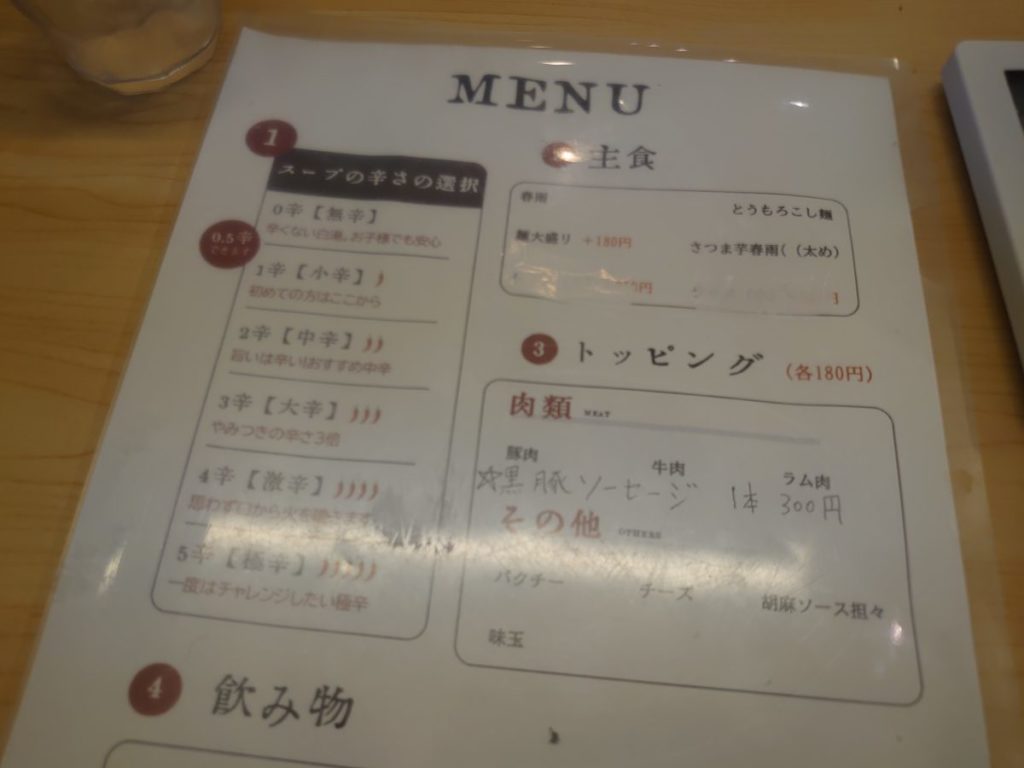 MENU
1
スープの辛さの選択
0辛【無辛】
辛くない白湯。お子様でも安心
0.5辛
できます
1辛【小辛】
初めての方はここから
2辛【中辛】
旨いは辛い!おすすめ中辛
3辛【大辛】
やみつきの辛さ3倍
4辛【激辛】
思わず口から火を噴きます
5辛【極辛】
一度はチャレンジしたい極辛
主食
春雨
とうもろこし麺
麺大盛り +180円
さつま芋春雨(（太め)
円
3 トッピング (各180円)
肉類 MEAT
豚肉 牛肉 ラム肉
☆黒豚ソーセージ 1本 300円
その他 OTHERS
パクチー チーズ 胡麻ソース担々
味玉
4 飲み物